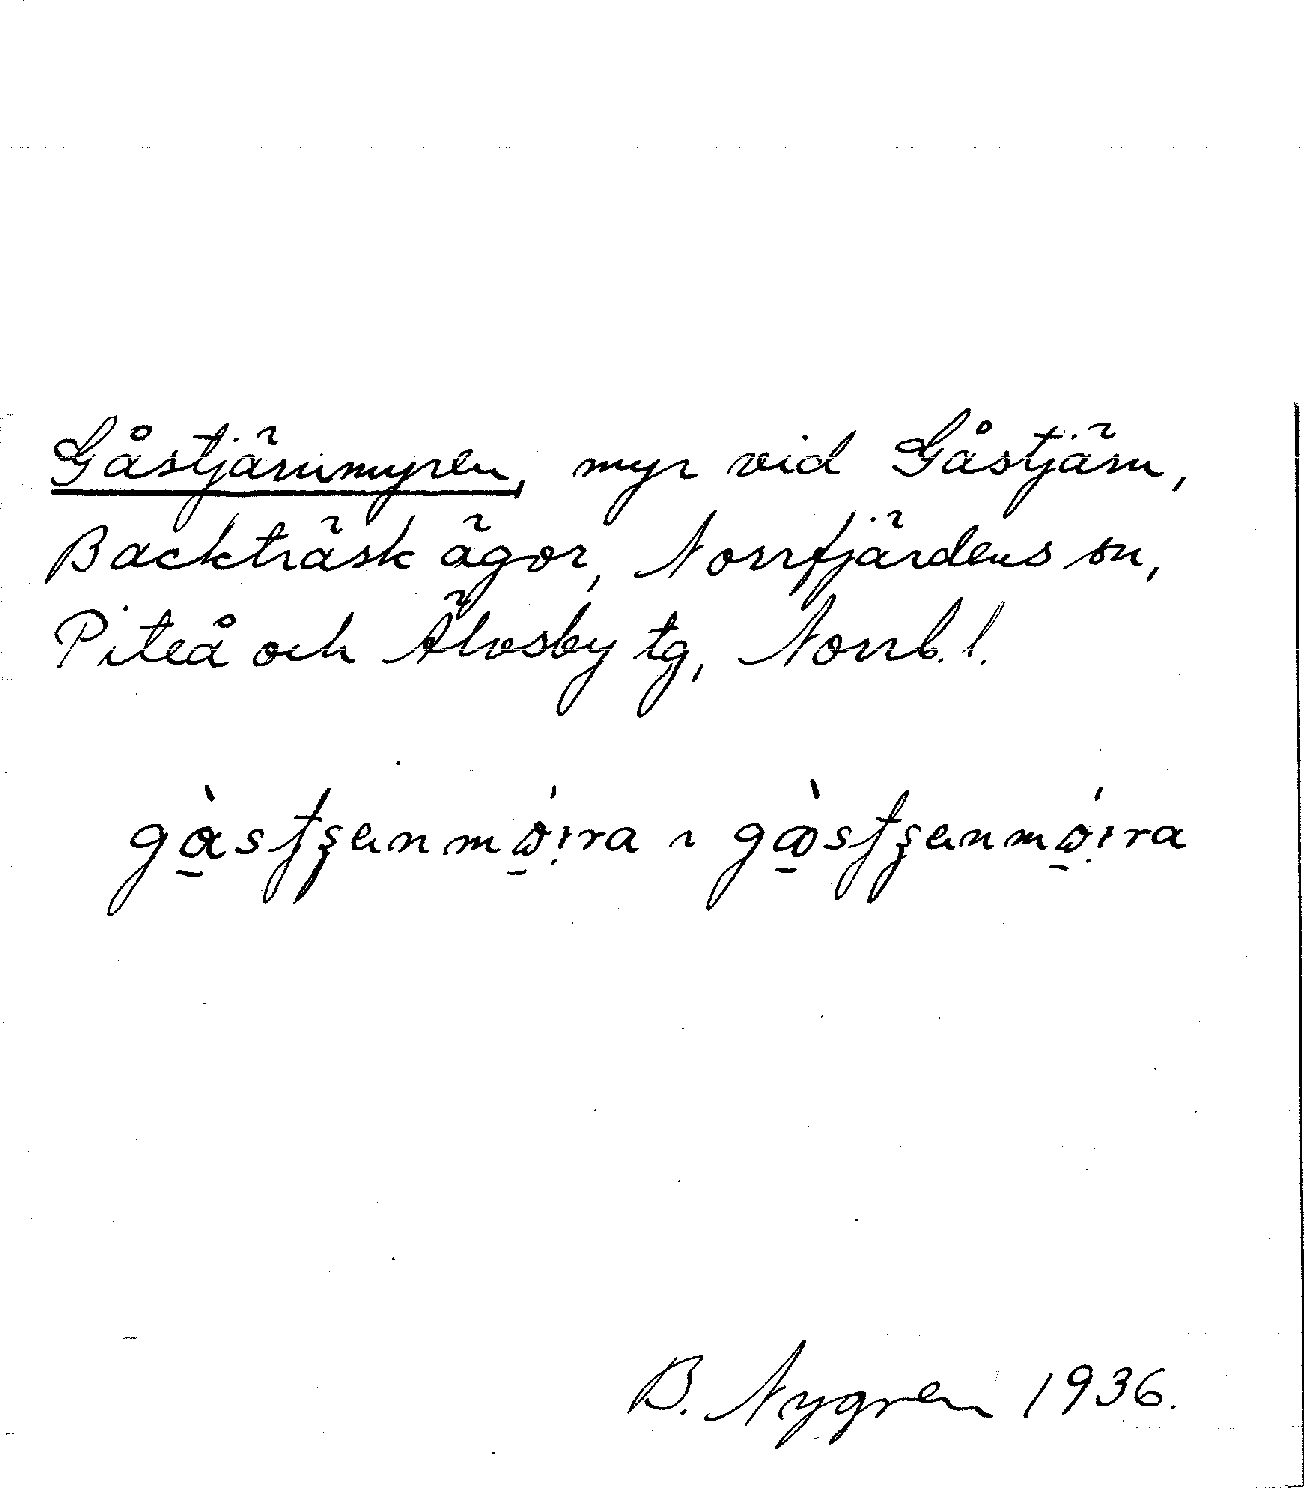 Gåstjärnmyren, myr vid Gåstjärn,
Backträsk ägor, Norrfjärdens sn,
Piteå och Älvsby tg, Norrb. l.
B. Nygren 1936.